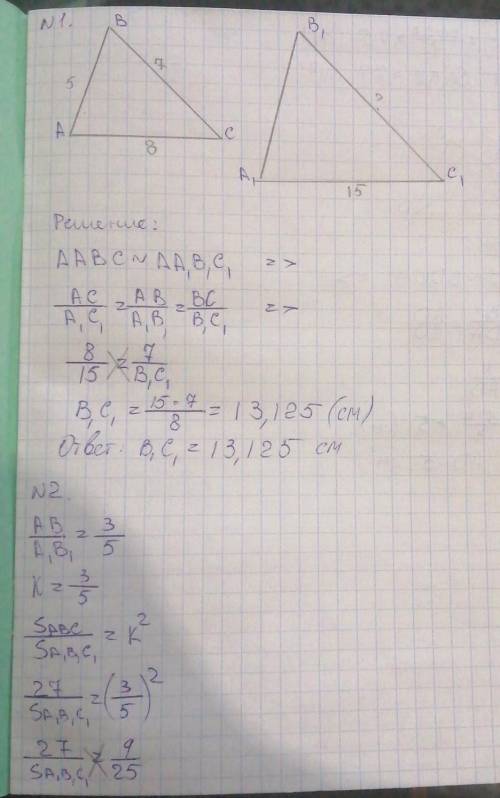 N1.
B
B₁
5
7
?
A
C
8
A₁
C₁
15
Решение:
ΔABC ~ ΔA₁B₁C₁ =>
AC/A₁C₁ = AB/A₁B₁ = BC/B₁C₁ =>
8/15 = 7/B₁C₁
B₁C₁ = 15·7/8 = 13,125 (см)
Ответ: B₁C₁ = 13,125 см
N2.
AB/A₁B₁ = 3/5
K = 3/5
SABC/SA₁B₁C₁ = K²
27/SA₁B₁C₁ = (3/5)²
27/SA₁B₁C₁ = 9/25